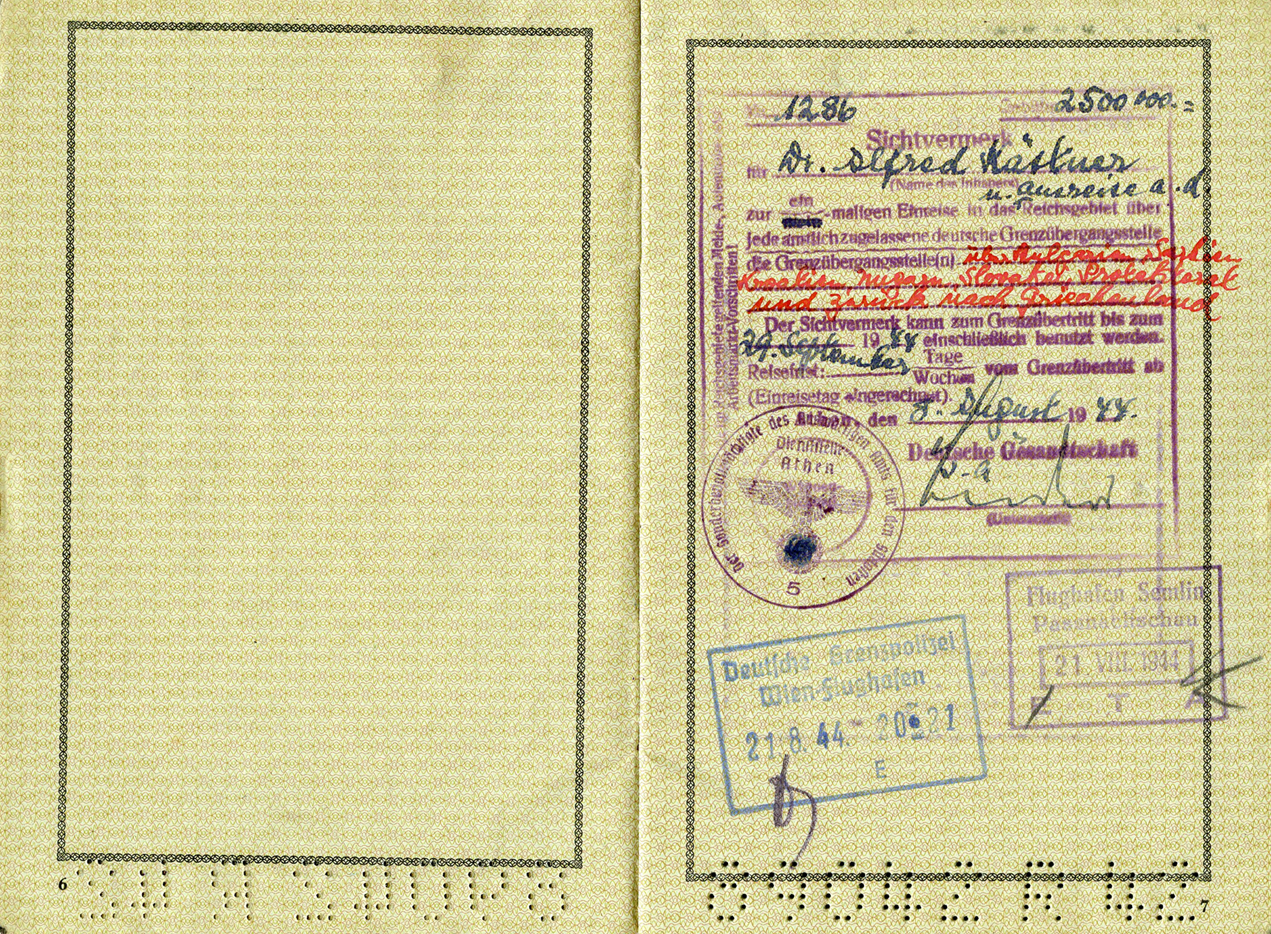 1286
2500 000.=
Sichtvermerk
für Dr. Alfred Kästner
(Name des Inhabers)
u. Ausreise a. d.
zur ein-maligen Einreise in das Reichsgebiet über
jede amtlich zugelassene deutsche Grenzübergangsstelle
die Grenzübergangsstelle(n) über Bulgarien, Serbien
Kroatien, Ungarn, Slovakei, Protektorat
und zurück nach Griechenland
Der Sichtvermerk kann zum Grenzübertritt bis zum
29. September 1944 einschließlich benutzt werden.
Reisefrist: Tage
Wochen vom Grenzübertritt ab
(Einreisetag eingerechnet).
Athen, den 8. August 1944.
Deutsche Gesandtschaft
(Unterschrift)
Der Sonderbevollmächtigte des Auswärtigen Amts für den Südosten
Dienststelle
Athen
5
Flughafen Semlin
21 VIII. 1944
E T A
Deutsche Grenzpolizei
Wien-Flughafen
21.8.44. 20 21
E
6
89042 R 42
7